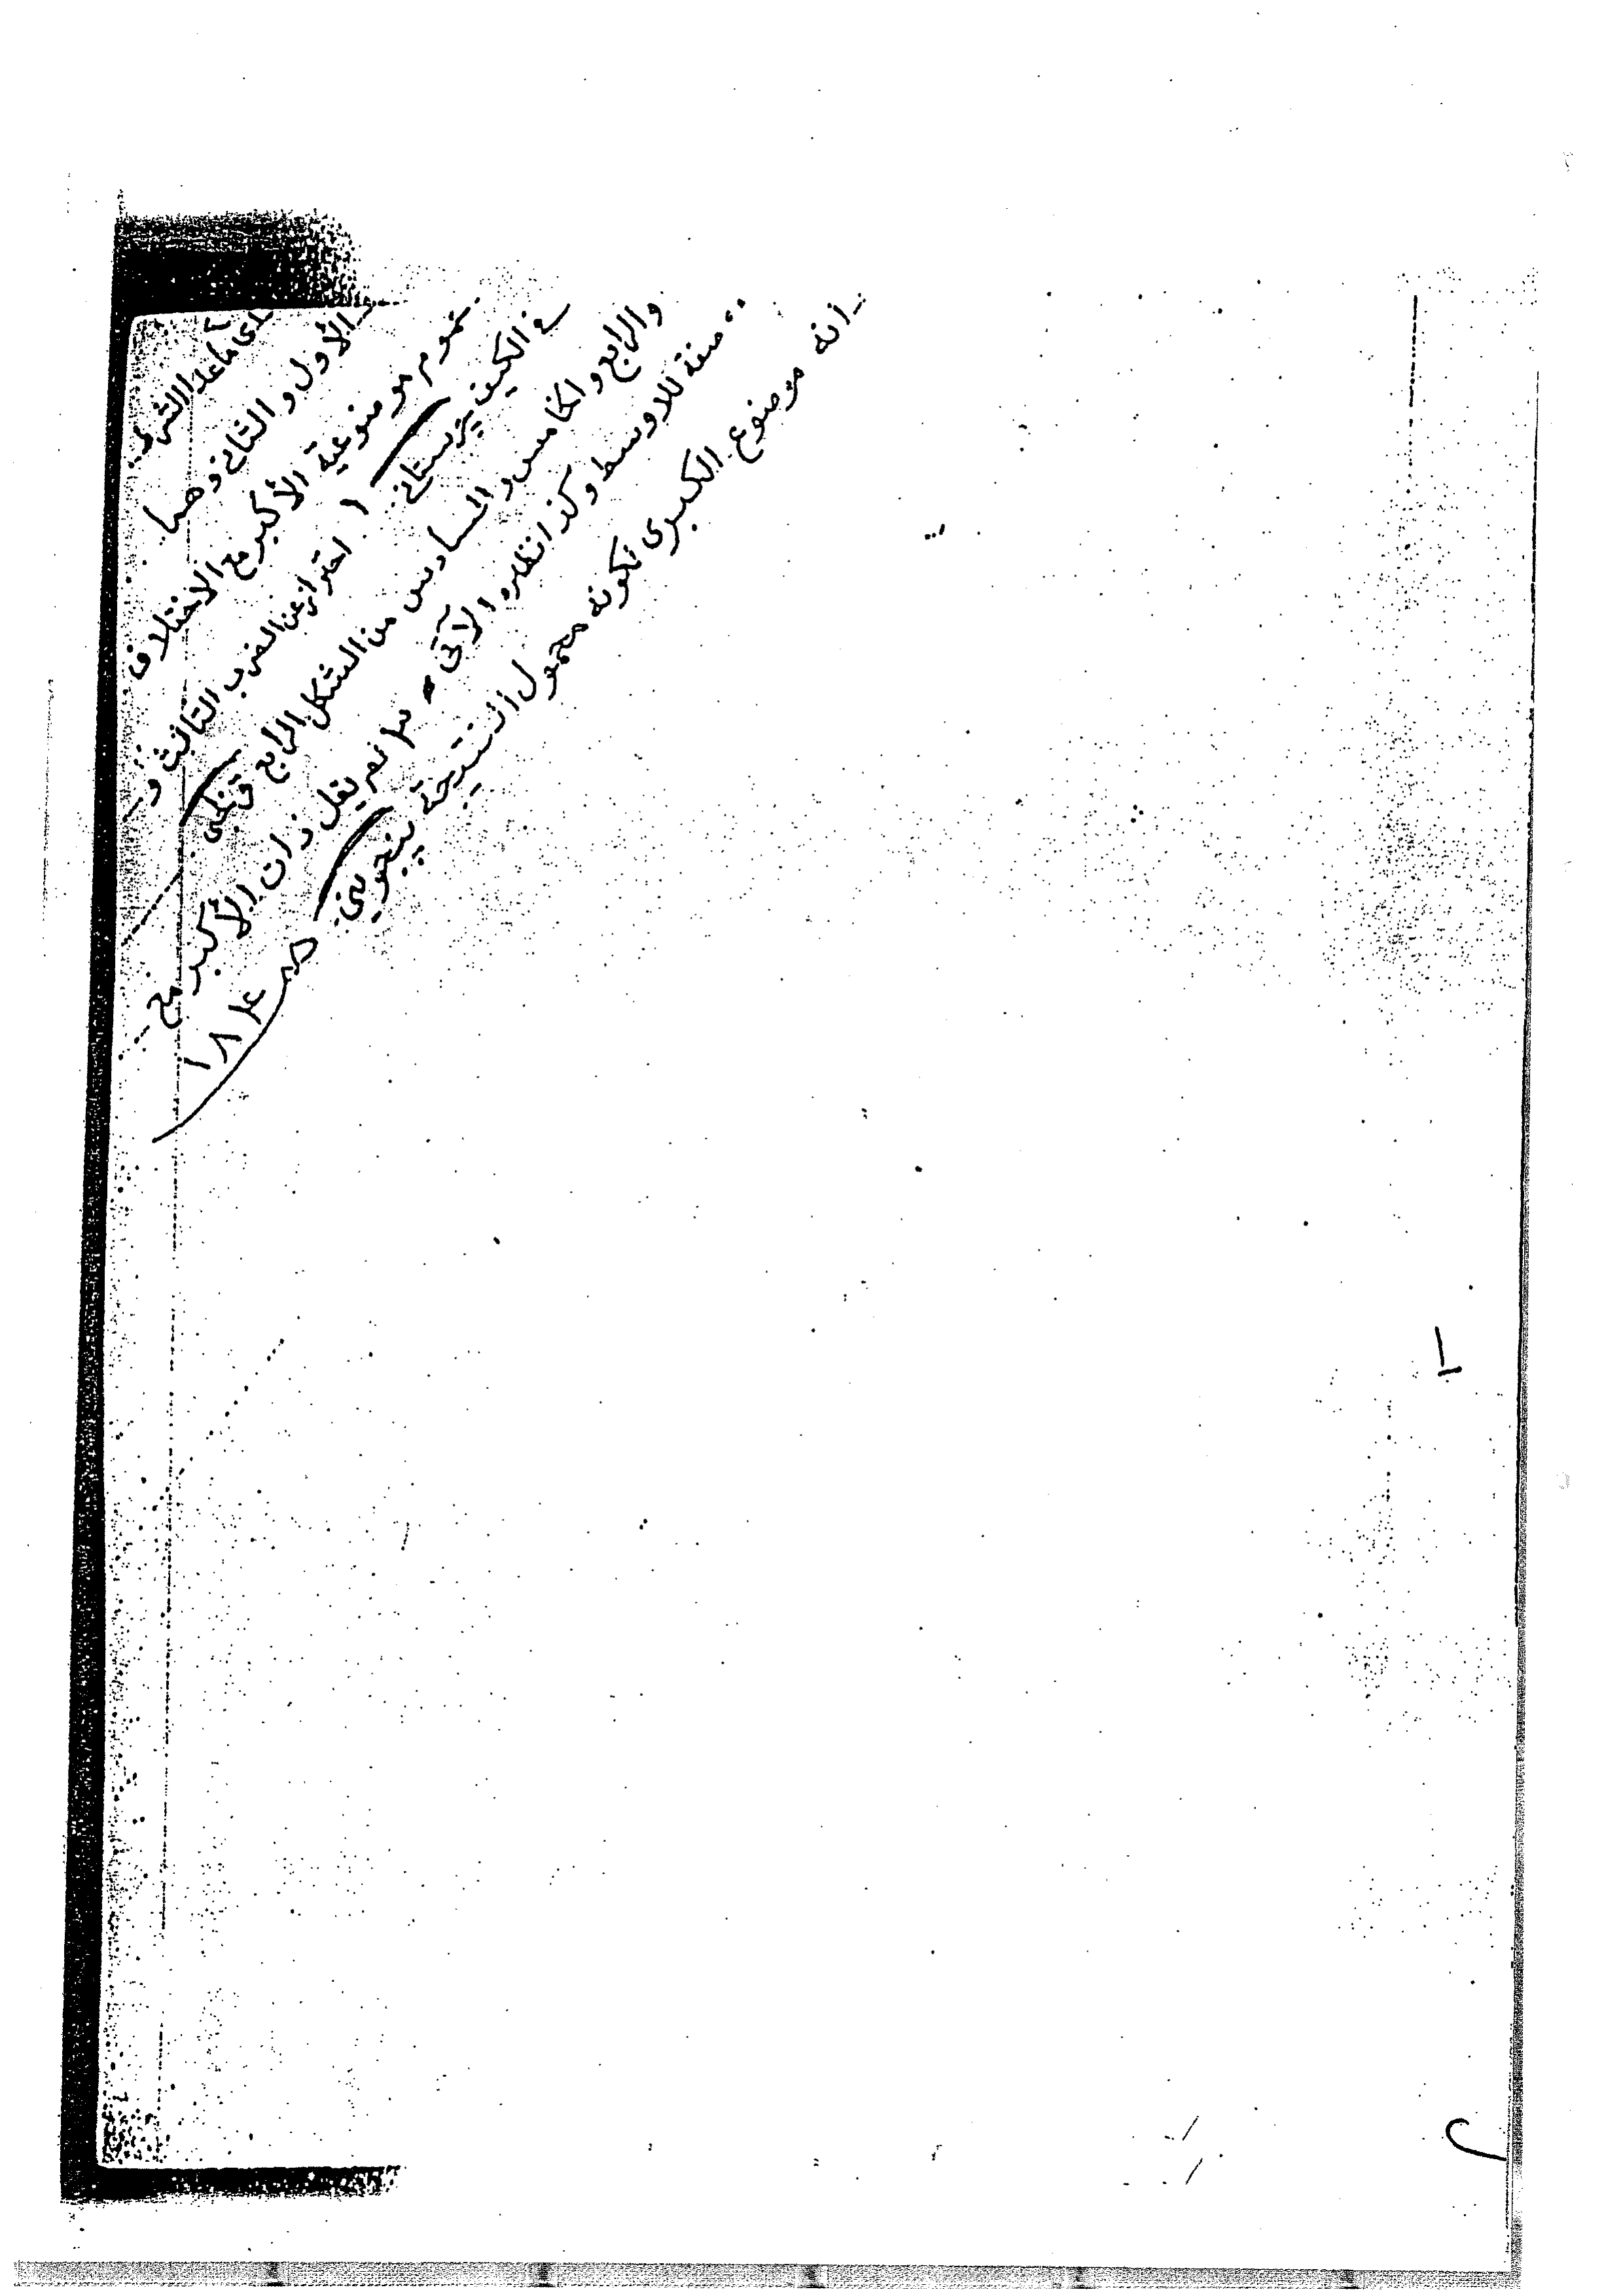 أى ما عدا الشرط
الأول والثانى وهما
عموم موضوعية الأكبر مع الاختلاف
فى الكيف
احتراز عن الضرب الثالث و
والرابع والخامس والسادس من الشكل الرابع قزلجى
صفة للاوسط وكذا نظيره الآتى
لم يقل ذات الأكبر مع
انه موضوع الكبرى لكونه محمول النتيجة پنجوينى
صـ ١٨٤